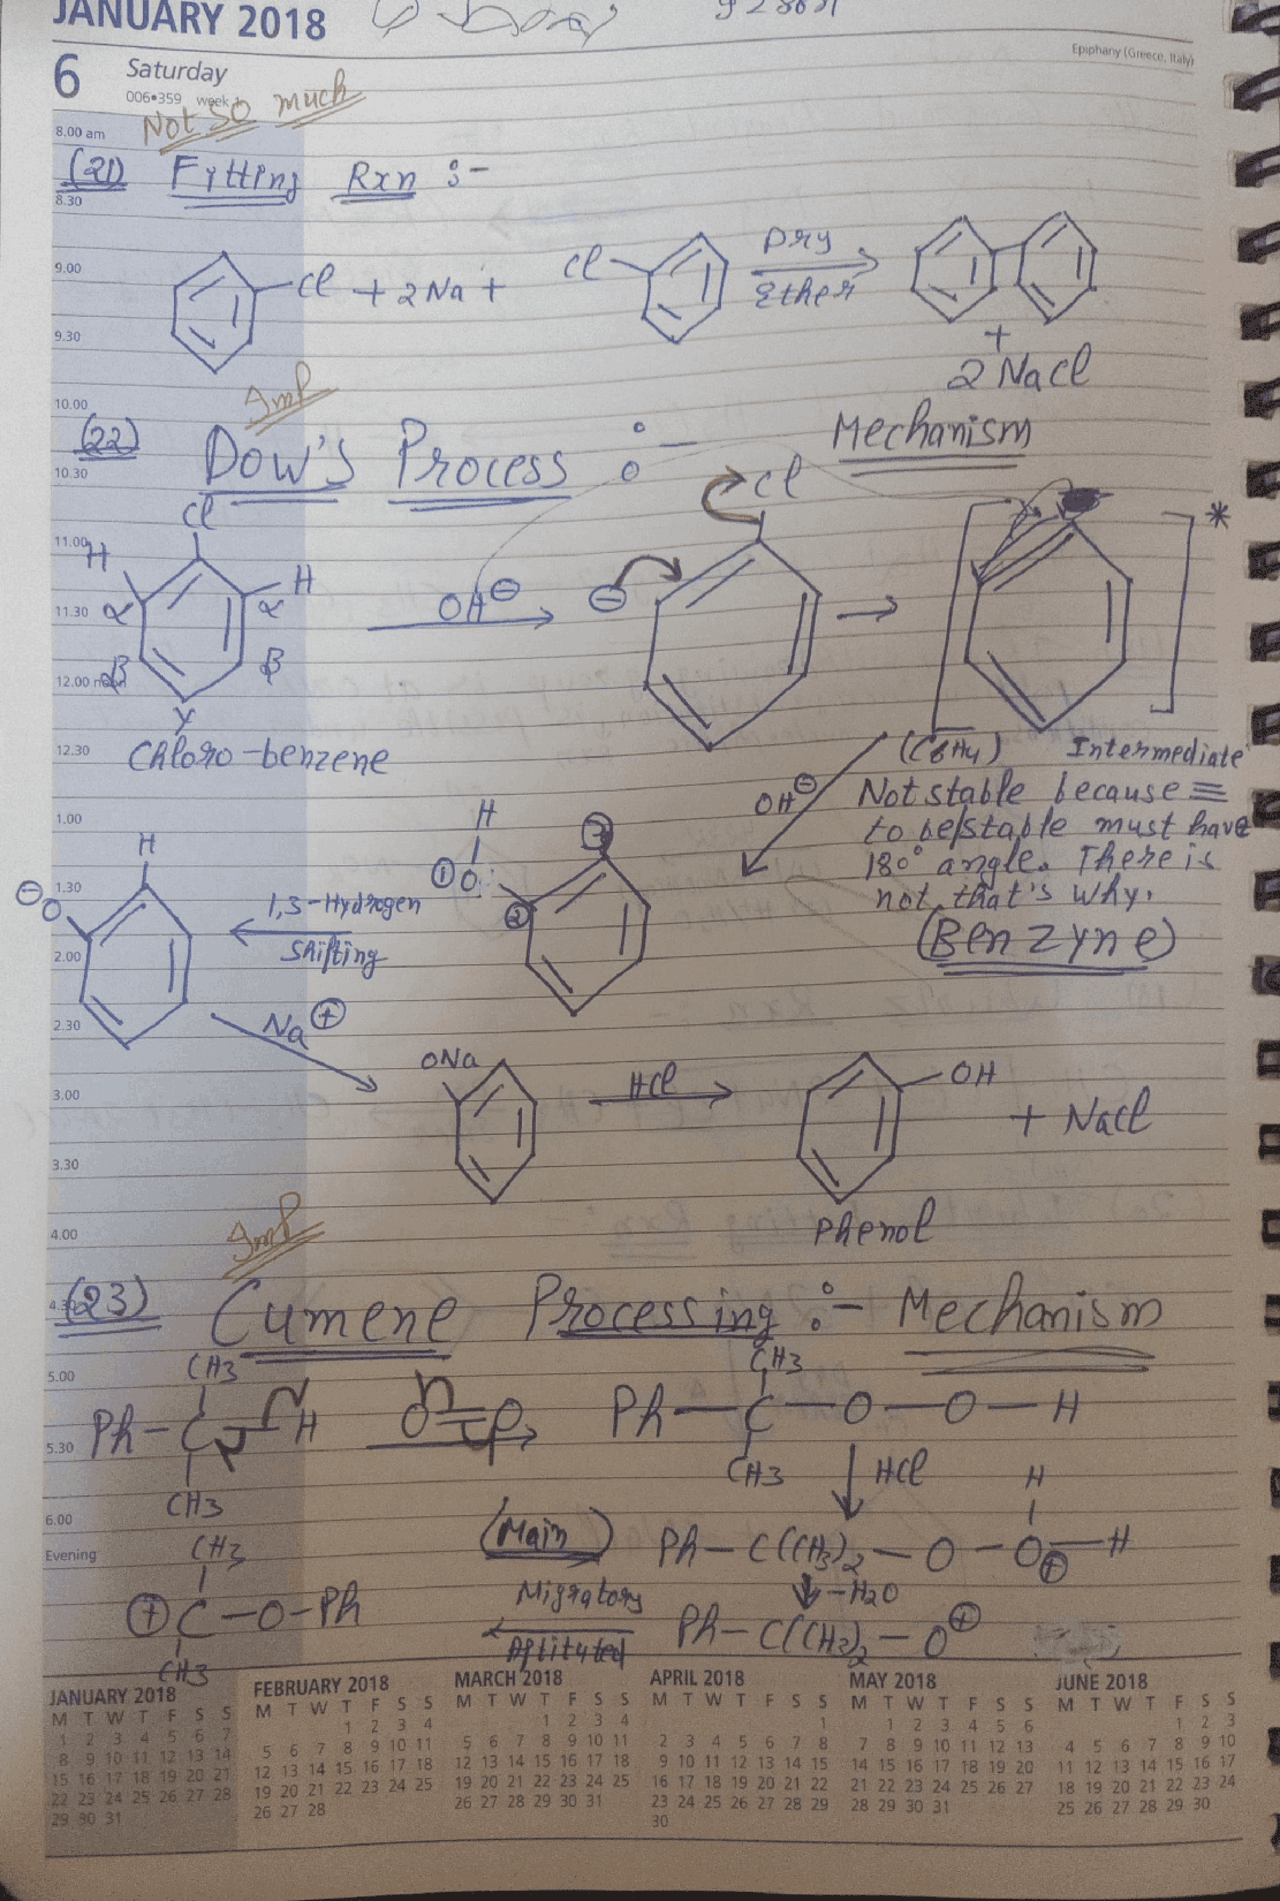 JANUARY 2018
6 Saturday
Epiphany (Greece, Italy)
006•359 week
Not So much
8.00 am
(21) Fitting Rxn :-
8.30
9.00
Cl + 2Na + Cl Dry Ether
9.30
+
2 NaCl
10.00
Imp
(22) Dow's Process :- Mechanism
10.30
Cl Cl
11.00
H H *
11.30
α α OH⊖ ⊖
β β
12.00 noon
γ
12.30
Chloro-benzene
(C6H4) Intermediate
OH⊖ Not stable because ≡
1.00
to be stable must have
180° angle. There is
not, that's why.
(Benzyne)
H H ③
1.30
⊖O ①O ②
1,3-Hydrogen
Shifting
2.00
2.30
Na⊕
ONa HCl OH
3.00
+ NaCl
3.30
4.00
Phenol
Imp
4.30
(23) Cumene Processing :- Mechanism
5.00
CH3 CH3
Ph-C-H O=O Ph-C-O-O-H
5.30
CH3 CH3
HCl
6.00
H
Evening
(Main) Ph-C(CH3)2-O-O⊕-H
CH3 Migratory -H2O
⊕C-O-Ph Aptituted Ph-C(CH3)2-O⊕
CH3
JANUARY 2018
M T W T F S S
1 2 3 4 5 6 7
8 9 10 11 12 13 14
15 16 17 18 19 20 21
22 23 24 25 26 27 28
29 30 31
FEBRUARY 2018
M T W T F S S
1 2 3 4
5 6 7 8 9 10 11
12 13 14 15 16 17 18
19 20 21 22 23 24 25
26 27 28
MARCH 2018
M T W T F S S
1 2 3 4
5 6 7 8 9 10 11
12 13 14 15 16 17 18
19 20 21 22 23 24 25
26 27 28 29 30 31
APRIL 2018
M T W T F S S
1
2 3 4 5 6 7 8
9 10 11 12 13 14 15
16 17 18 19 20 21 22
23 24 25 26 27 28 29
30
MAY 2018
M T W T F S S
1 2 3 4 5 6
7 8 9 10 11 12 13
14 15 16 17 18 19 20
21 22 23 24 25 26 27
28 29 30 31
JUNE 2018
M T W T F S S
1 2 3
4 5 6 7 8 9 10
11 12 13 14 15 16 17
18 19 20 21 22 23 24
25 26 27 28 29 30